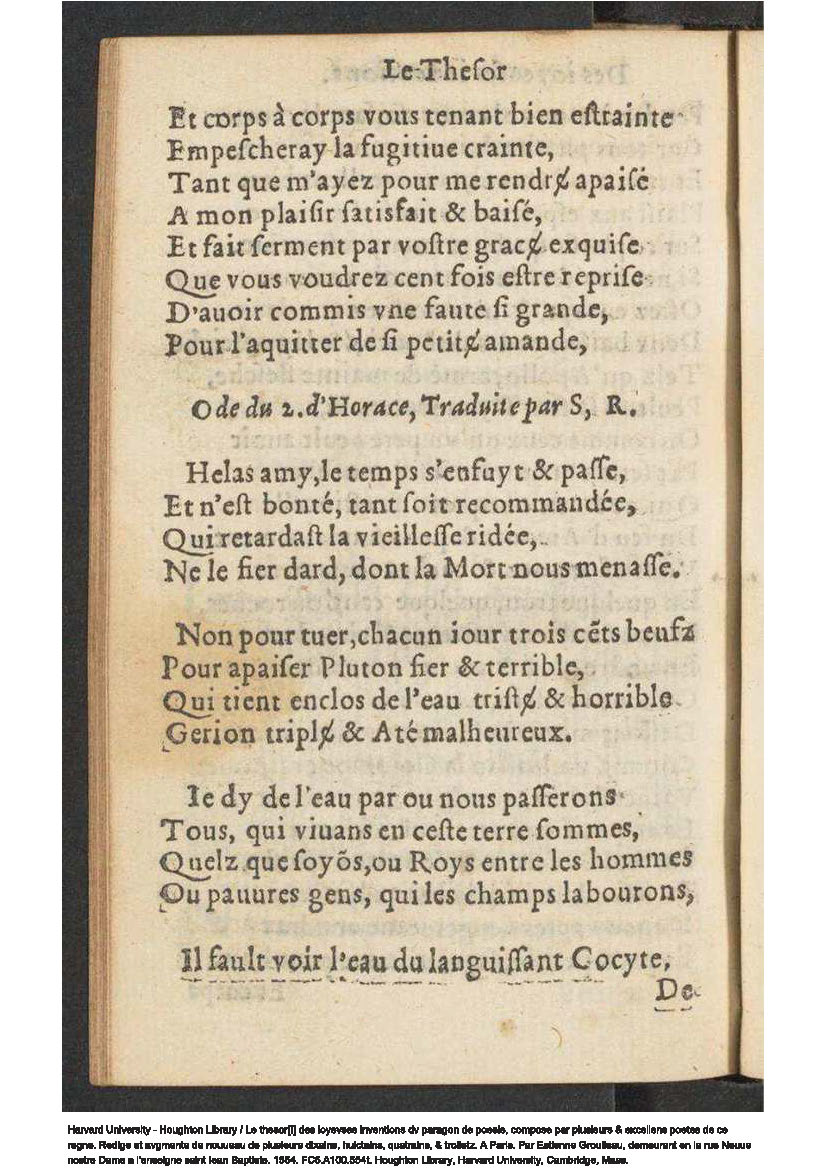 Le Theſor
Et corps à corps vous tenant bien eſtrainte
Empeſcheray la fugitiue crainte,
Tant que m'ayez pour me rendrɇ apaiſé
A mon plaiſir ſatisfait & baiſé,
Et fait ſerment par voſtre gracɇ exquiſe
Que vous voudrez cent fois eſtre repriſe
D'auoir commis vne faute ſi grande,
Pour l'aquitter de ſi petitɇ amande,
Ode du 2. d'Horace, Traduite par S, R.
Helas amy, le temps s'enfuyt & paſſe,
Et n'eſt bonté, tant ſoit recommandée,
Qui retardaſt la vieilleſſe ridée,
Ne le fier dard, dont la Mort nous menaſſe.
Non pour tuer, chacun iour trois cẽts beufz
Pour apaiſer Pluton fier & terrible,
Qui tient enclos de l'eau triſtɇ & horrible
Gerion triplɇ & Até malheureux.
Ie dy de l'eau par ou nous paſſerons
Tous, qui viuans en ceſte terre ſommes,
Quelz que ſoyõs, ou Roys entre les hommes
Ou pauures gens, qui les champs labourons,
Il fault voir l'eau du languiſſant Cocyte,
De
Harvard University - Houghton Library / Le thesor[!] des ioyevses inventions dv paragon de poesie, compose par plusieurs & excellens poetes de ce
regne. Redige et avgmente de nouueau de plusieurs dixains, huictains, quatrains, & trolletz. A Paris. Par Estienne Groulleau, demeurant en la rue Neuue
nostre Dame a l'enseigne saint Iean Baptiste. 1554. FC5.A100.554t. Houghton Library, Harvard University, Cambridge, Mass.